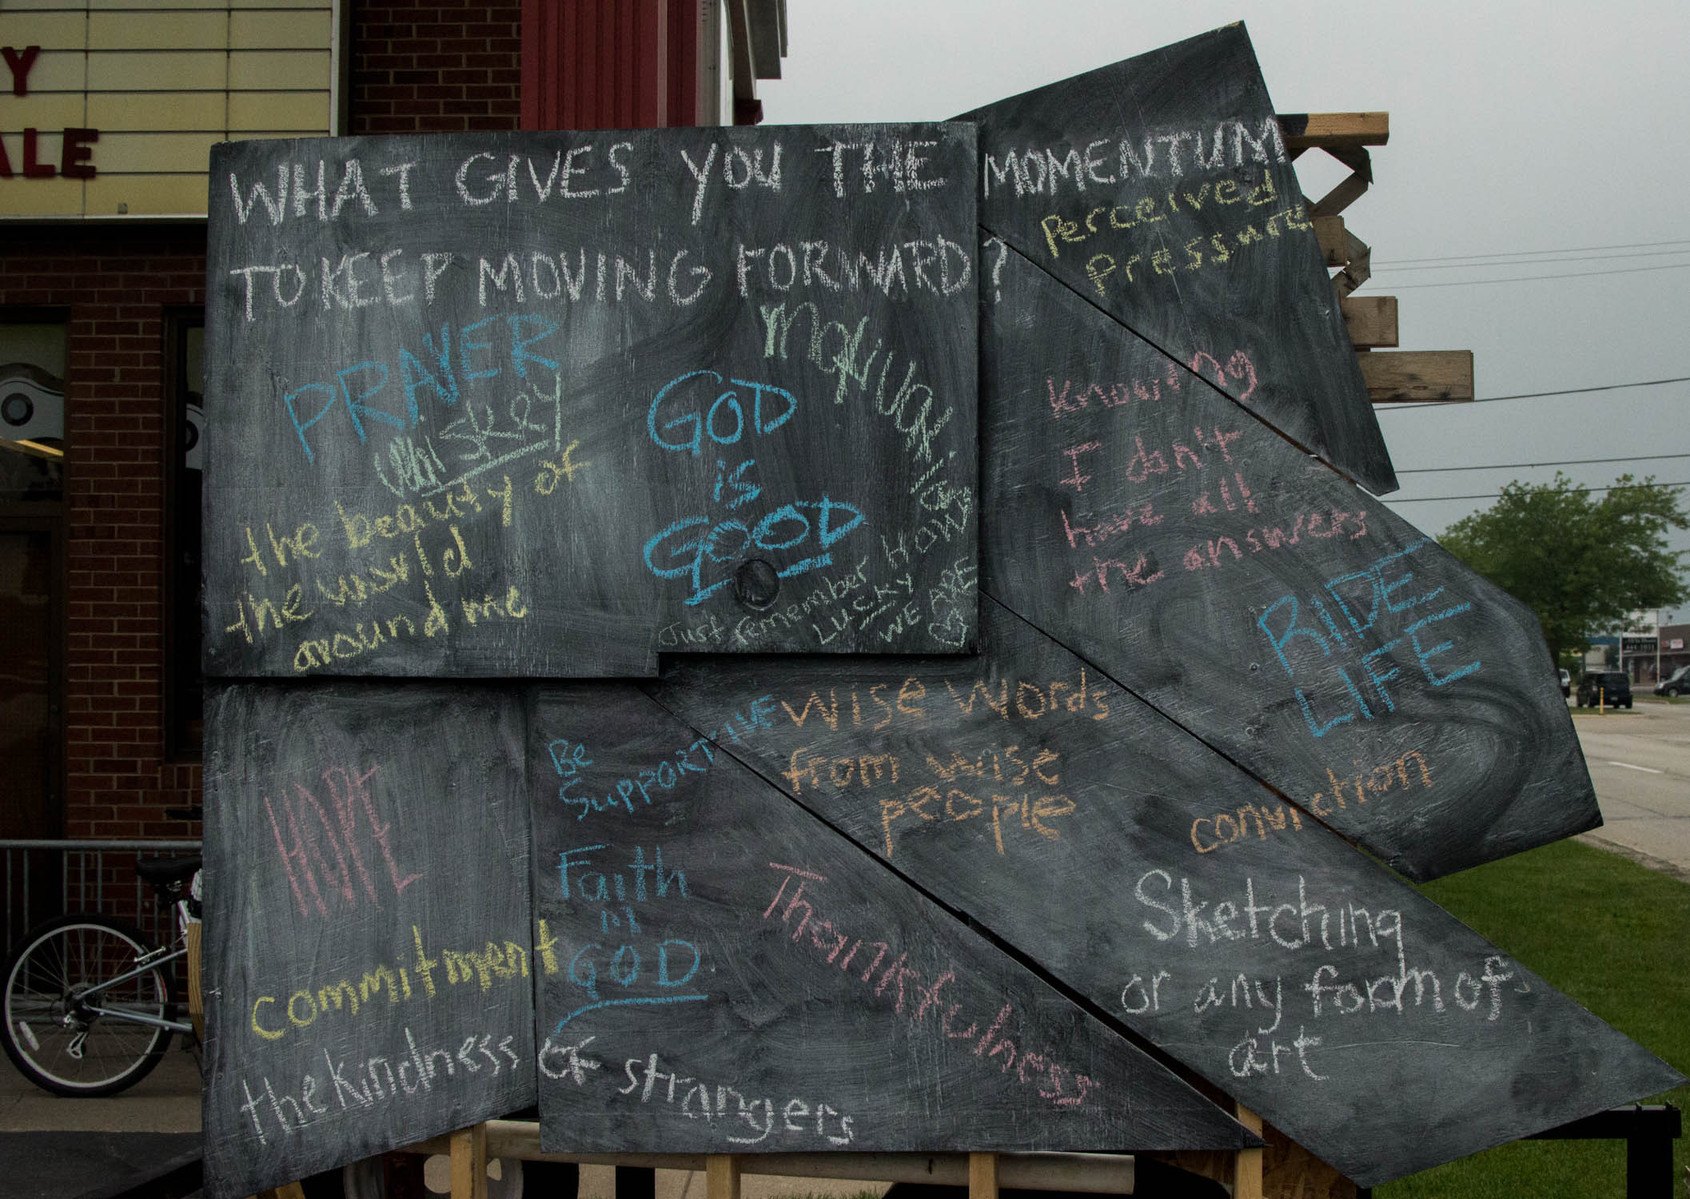 Y
ALE
WHAT GIVES YOU THE MOMENTUM
TO KEEP MOVING FORWARD?
perceived
pressure
PRAYER
whiskey
the beauty of
the world
around me
GOD
is
GOOD
Just remember HOW
LUCKY
WE ARE
knowing
I don't
have all
the answers
RIDE
LIFE
HOPE
commitment
the kindness OF strangers
BE
SUPPORTIVE
Faith
in
GOD
Thankfulness
wise words
from wise
people
conviction
Sketching
or any form of
art